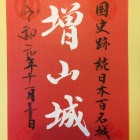 国史跡 続日本百名城
増山城
令和元年十一月十日